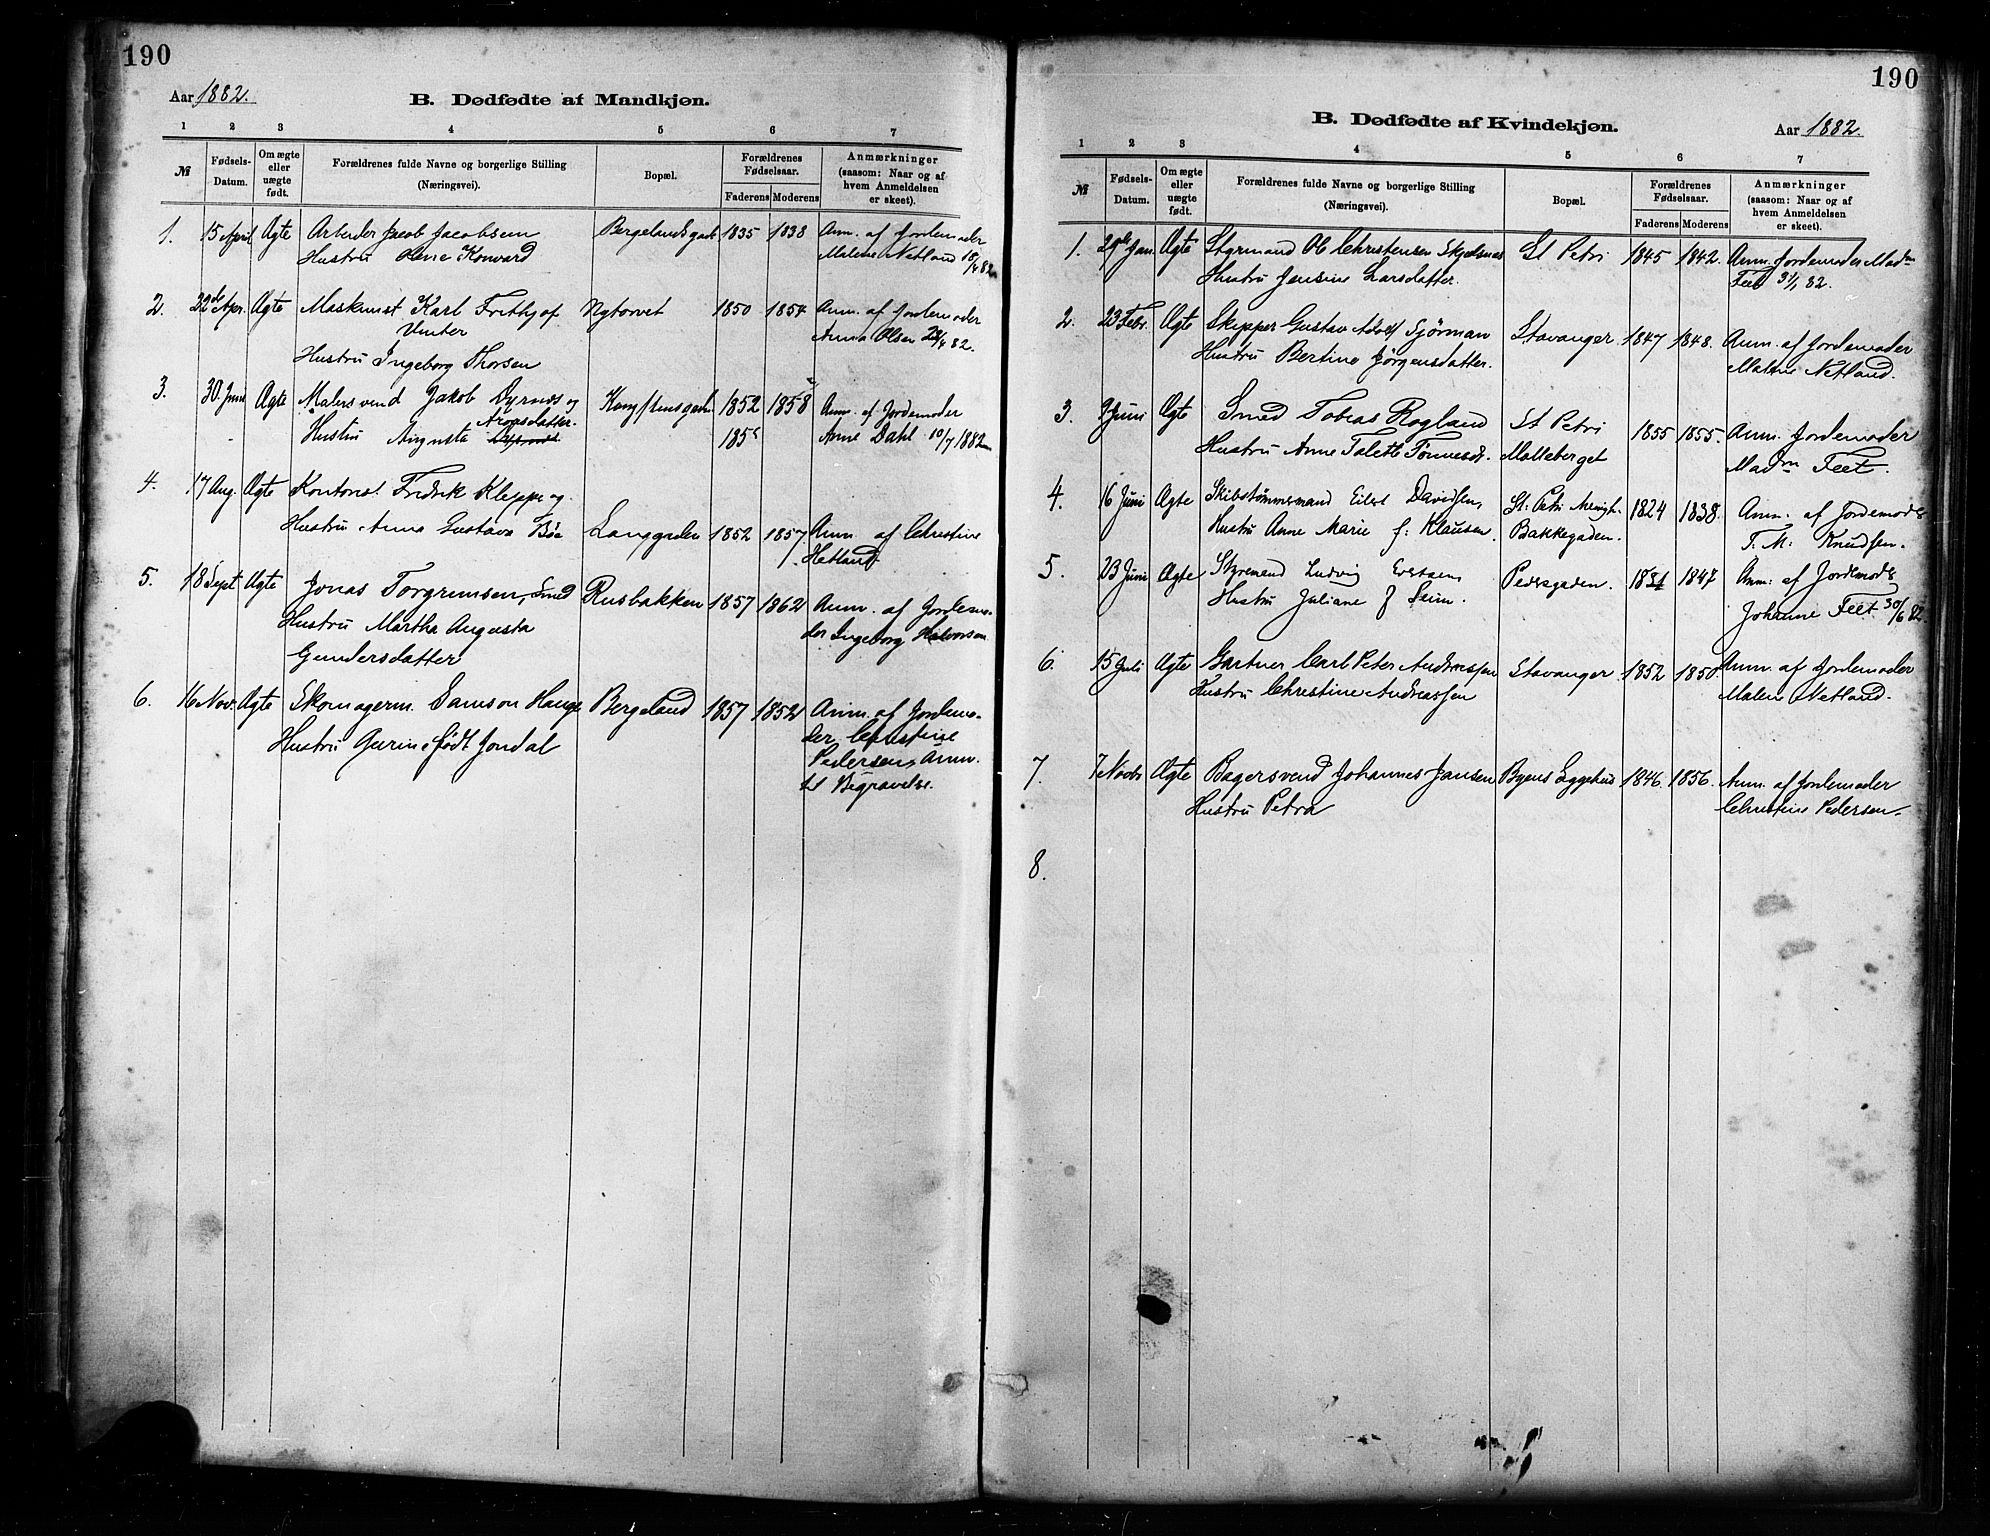 190
Aar 1882.
B. Dødfødte af Mandkjøn.
1 2 3 4 5 6 7
№ Fødsels-Datum. Om ægte eller uægte født. Forældrenes fulde Navne og borgerlige Stilling (Næringsvei). Bopæl. Forældrenes Fødselsaar. Faderens Moderens Anmærkninger (saasom: Naar og af hvem Anmeldelsen er skeet).
1. 15 April Ægte Arbeider Jacob Jacobsen Bergelandsgade 1835 1838 Anm. af Jordemoder
Hustru Konvard Malene Netland 18/4 82
2. 22de Apr. Ægte Maskinist Karl Frithjof Nytorvet 1850 1854 Anm. af Jordemoder
Vinter Anna Olsen 82.
Hustru Ingeborg Thorsen
3. 30 Juni Ægte Malersvend Jakob Dyrnes og 1852 1858 Anm. af Jordemoder
Aronsdatter.
Hustru Augusta 185 Anne Dahl 10/7 1882
4. 17 Aug. Ægte Kontorist Fredrik Kleppe og
Hustru Anna Gustava Bøe Langgaden 1852 1857 Anm. af Christine
Hetland.
5. 18 Sept Ægte Jonas Torgrimsen, Smed Rusbakken 1857 1862 Anm. af Jordemo-
Hustru Martha Augusta der Ingeborg Halvorsen
Gundersdatter
6. 16 Nov. Ægte Skomagerm. Samson Hauge Bergeland 1857 1852 Anm. af Jordemo-
Hustru Gurine født Jondal der Christine
Pedersen, Anm.
til Begravelse.
190
B. Dødfødte af Kvindekjøn.
Aar 1882.
1 2 3 4 5 6 7
№ Fødsels-Datum. Om ægte eller uægte født. Forældrenes fulde Navne og borgerlige Stilling (Næringsvei). Bopæl. Forældrenes Fødselsaar. Faderens Moderens Anmærkninger (saasom: Naar og af hvem Anmeldelsen er skeet).
1. 29de Jan. Ægte Styrmand Ole Christensen Skjelsnes St Petri 1845 1842. Anm. Jordemoder Madm
Hustru Jensine Larsdatter. Feet 31/1 82.
2. 23 Febr. Ægte Skipper Gustav Adolf Sjörman Stavanger 1847 1848. Anm. af Jordemoder
Hustru Bertine Jørgensdatter. Malene Netland.
3. 9 Juni Ægte Smed Tobias Rogland St Petri 1855 1855. Anm. Jordemoder
Hustru Anne Talette Tønnesdt. Malleberget Madm Feet.
4. 16 Juni Ægte Skibstømmermand Eilert Davidsen, St. Petri Menigh. 1824 1838. Anm. af Jordemoder
Hustru Anne Marie f: Klausen. Bakkegaden. T. M. Knudsen.
5. 23 Juni Ægte Styrmand Ludvig Pedersgaden. 1831 1847 Anm. af Jordemoder
Hustru Juliane f Seim. Johanne Feet 30/6 82
6. 15 Juli Ægte Gartner Carl Peter Andreassen Stavanger 1852 1850 Anm. af Jordemoder
Hustru Christine Andreassen Malene Netland.
7. 7 Novbr Ægte Bagersvend Johannes Jansen Byens Sygehus 1846. 1856. Anm. af Jordemoder
Hustru Petra Christine Pedersen.
8.